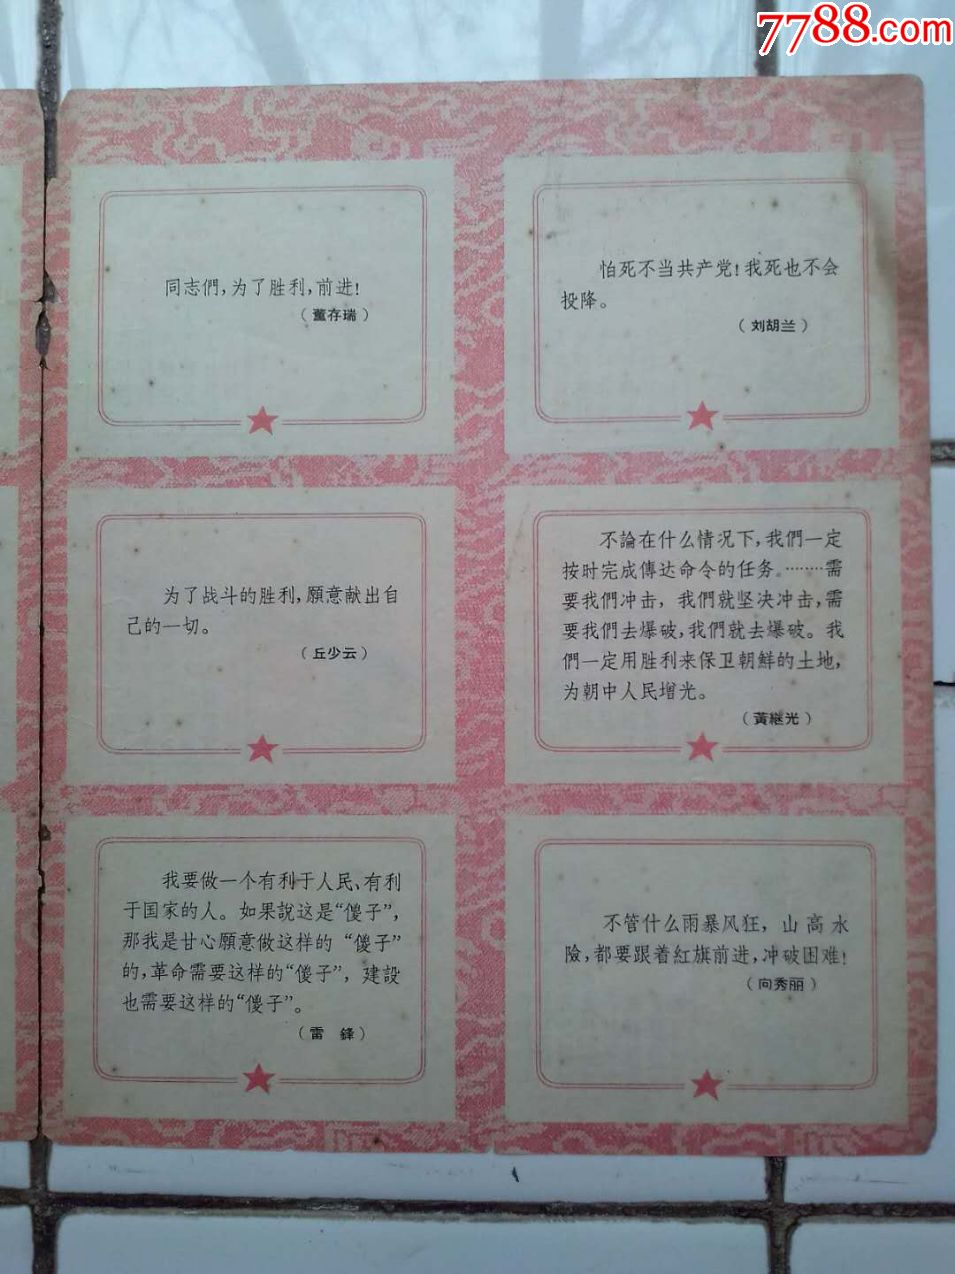 7788.com
同志們，为了胜利，前进！
（董存瑞）
怕死不当共产党！我死也不会
投降。
（刘胡兰）
为了战斗的胜利，願意献出自
己的一切。
（丘少云）
不論在什么情况下，我們一定
按时完成傳达命令的任务。………需
要我們冲击，我們就坚决冲击，需
要我們去爆破，我們就去爆破。我
們一定用胜利来保卫朝鮮的土地，
为朝中人民增光。
（黃継光）
我要做一个有利于人民、有利
于国家的人。如果說这是“傻子”，
那我是甘心願意做这样的“傻子”
的，革命需要这样的“傻子”，建設
也需要这样的“傻子”。
（雷 鋒）
不管什么雨暴风狂，山高水
險，都要跟着紅旗前进，冲破困难！
（向秀丽）